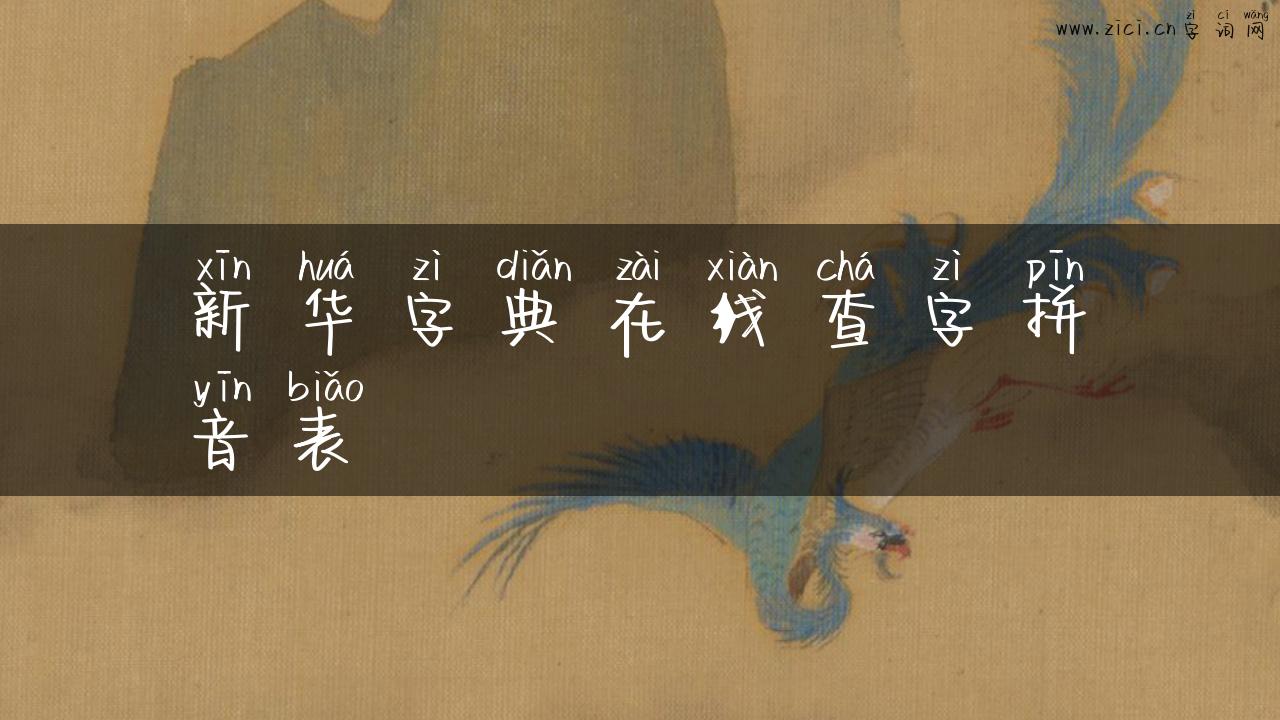 zì cí wǎng
www.zici.cn 字 词 网
xīn huá zì diǎn zài xiàn chá zì pīn
新 华 字 典 在 线 查 字 拼
yīn biǎo
音 表